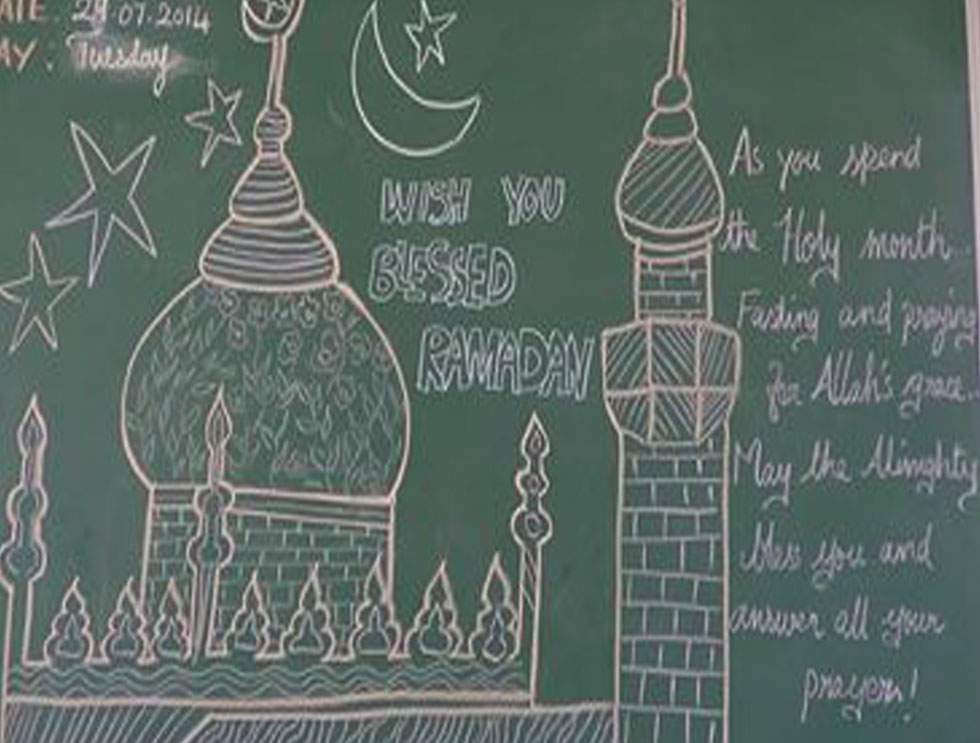 ATE. 29.07.2014
AY: Tuesday
WISH YOU
BLESSED
RAMADAN
As you spend
the Holy month
Fasting and praying
for Allah's grace
May the Almighty
bless you and
answer all your
prayers!